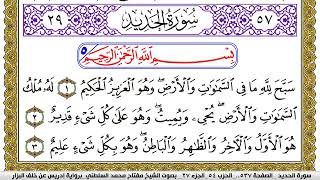 ٥٧ سُورَةُ الحَدِيدِ ٢٩
بِسْمِ اللَّهِ الرَّحْمَٰنِ الرَّحِيمِ
سَبَّحَ لِلَّهِ مَا فِي السَّمَٰوَٰتِ وَالْأَرْضِ وَهُوَ الْعَزِيزُ الْحَكِيمُ ١ لَهُ مُلْكُ
السَّمَٰوَٰتِ وَالْأَرْضِ يُحْيِۦ وَيُمِيتُ وَهُوَ عَلَىٰ كُلِّ شَيْءٍ قَدِيرٌ ٢
هُوَ الْأَوَّلُ وَالْآخِرُ وَالظَّٰهِرُ وَالْبَاطِنُ وَهُوَ بِكُلِّ شَيْءٍ عَلِيمٌ ٣
سورة الحديد .. الصفحة ٥٣٧ .. الحزب ٥٤ الجزء ٢٧ .. بصوت الشيخ مفتاح محمد السلطني برواية إدريس عن خلف البزار